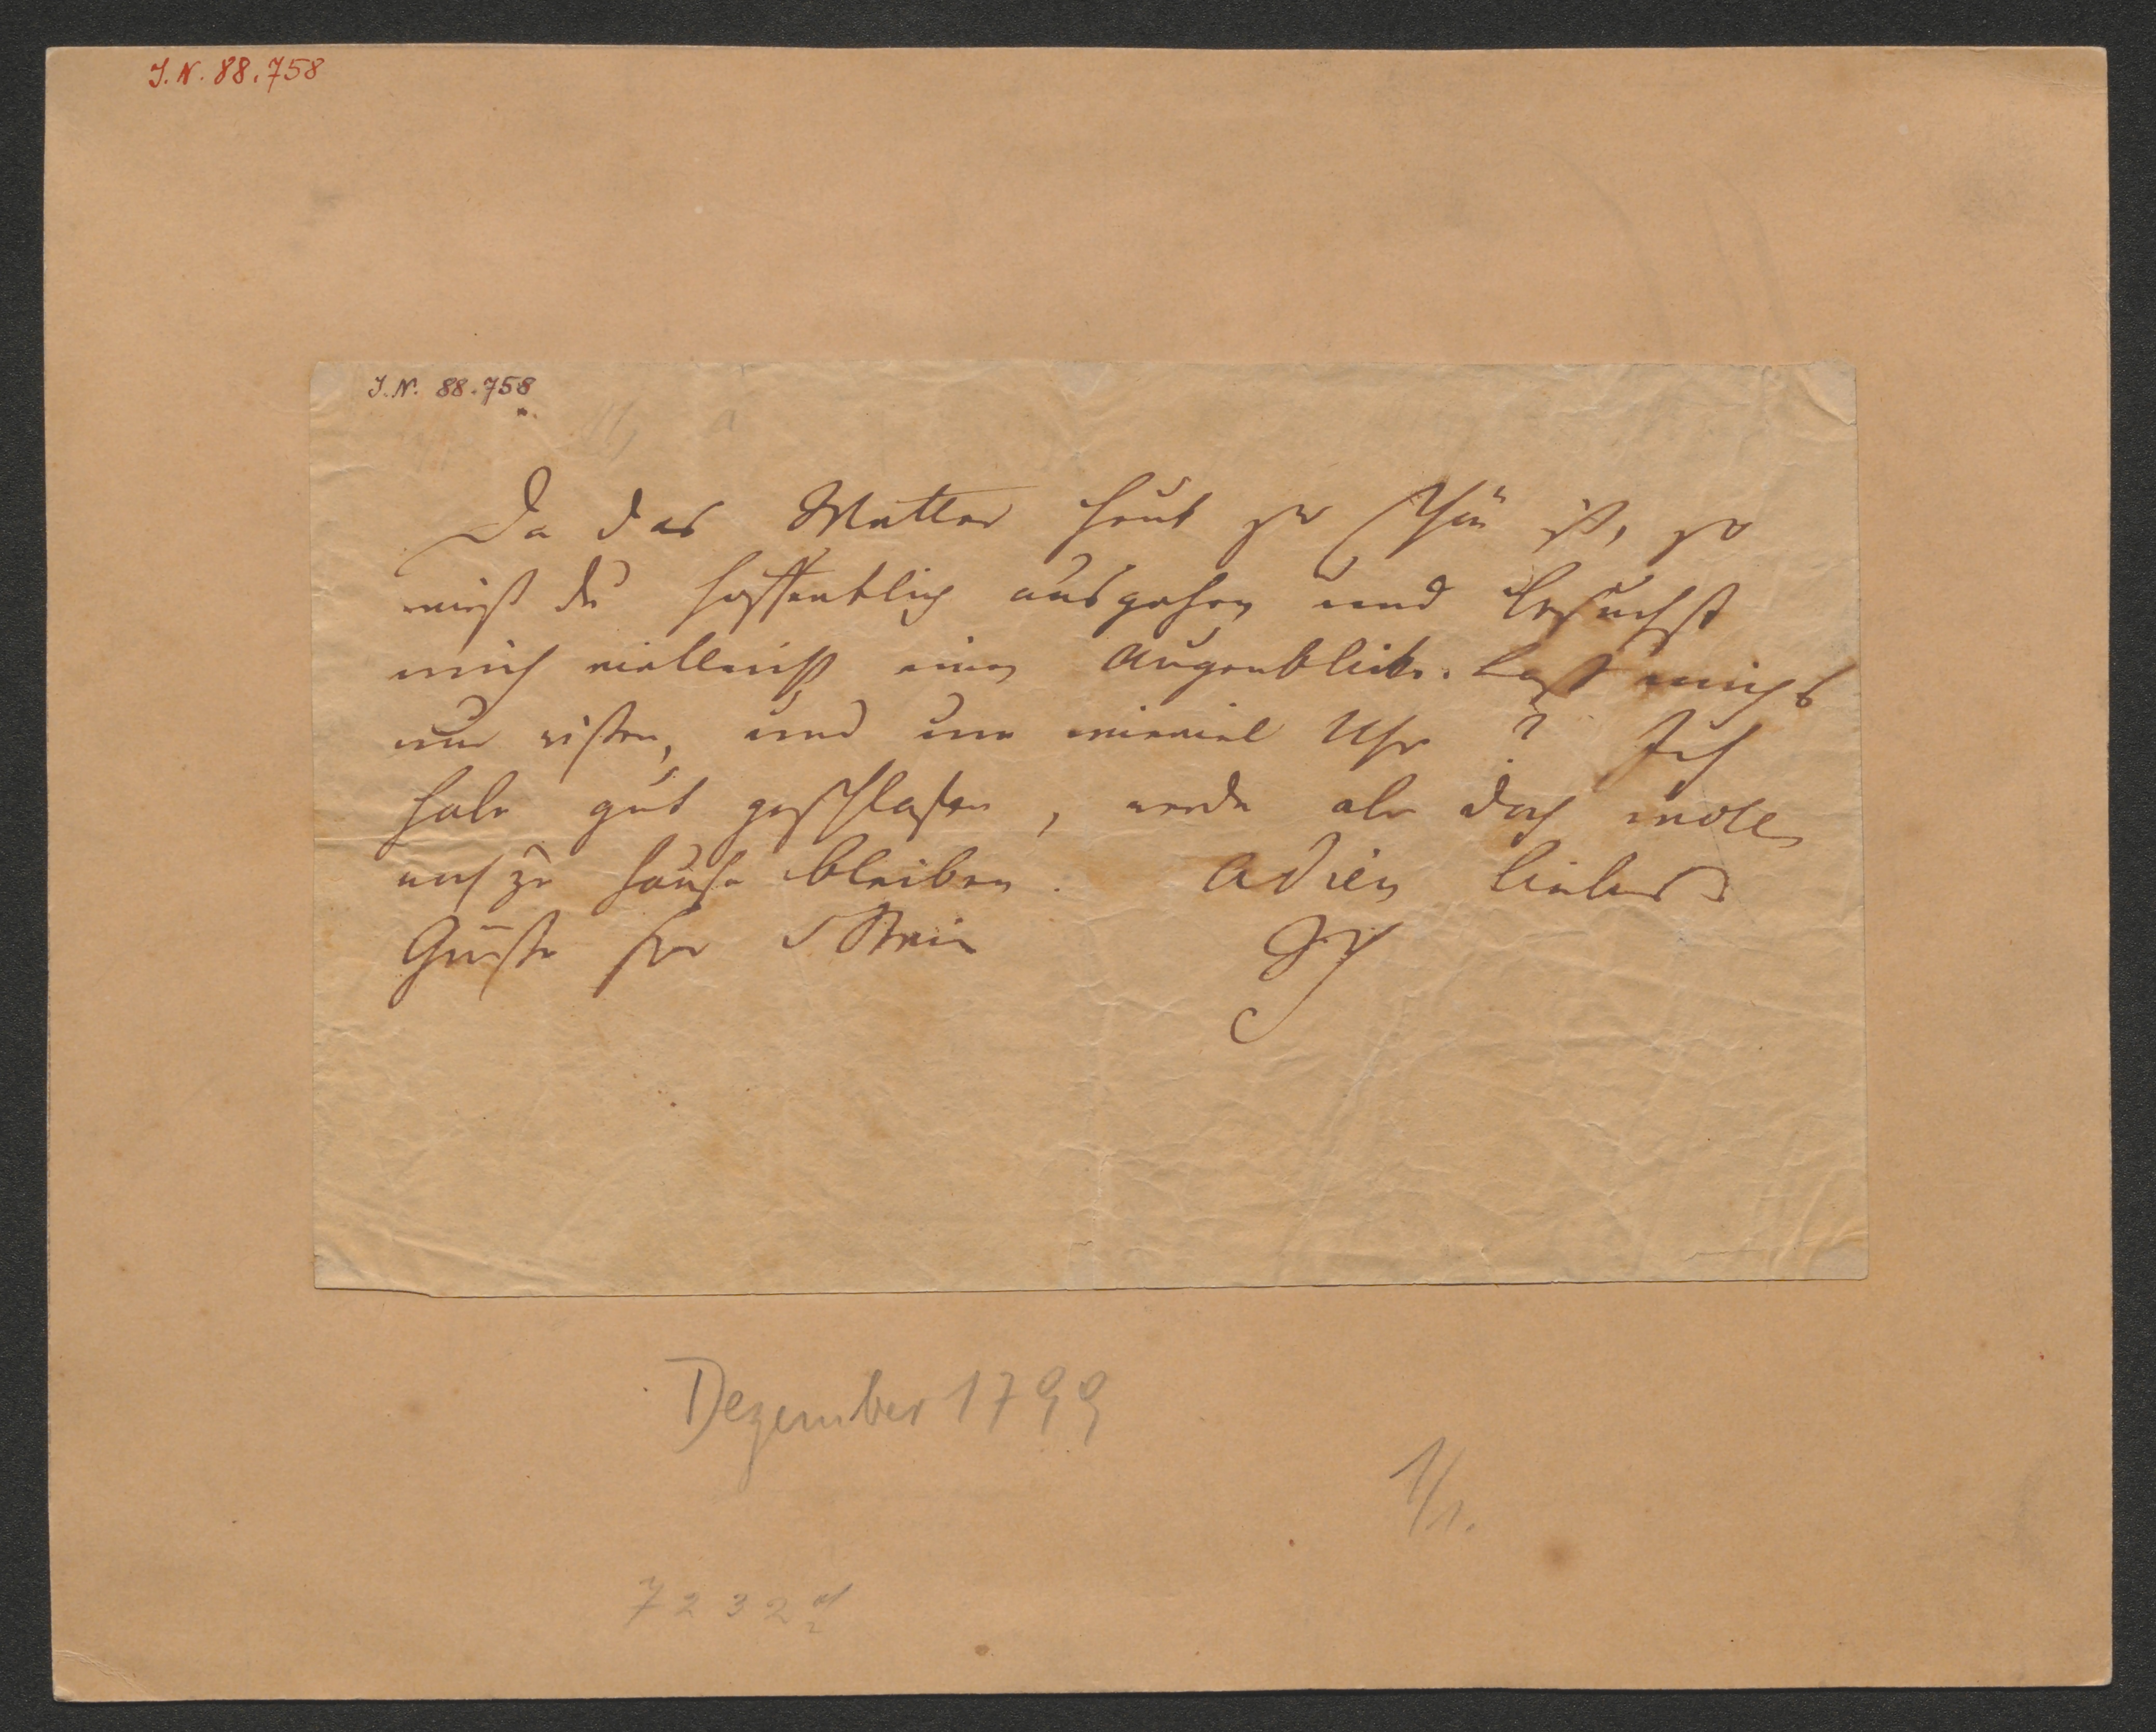 J. N. 88.758
J. N. 88.758
Da das Wetter heut so schön ist, so
wirst du hoffentlich ausgehen und besuchst
mich vielleicht einen Augenblick. Laß michs
nur wissen, und um wieviel Uhr? Ich
habe gut geschlafen, werde aber doch wol
noch zu Hause bleiben. Adieu liebes
Grüße
Dezember 1799
1/1.
7232